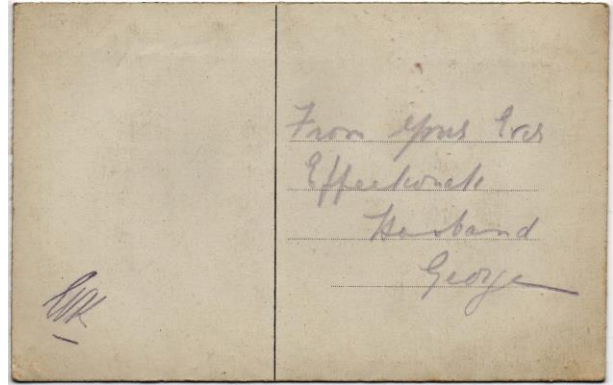 From yours Ever
Effectionate
Husband
George